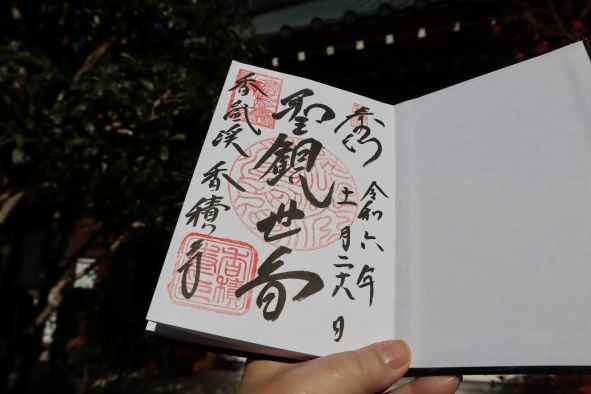 奉拝
令和六年
十一月二十日
聖観世音
香嵐渓 香積寺
香積